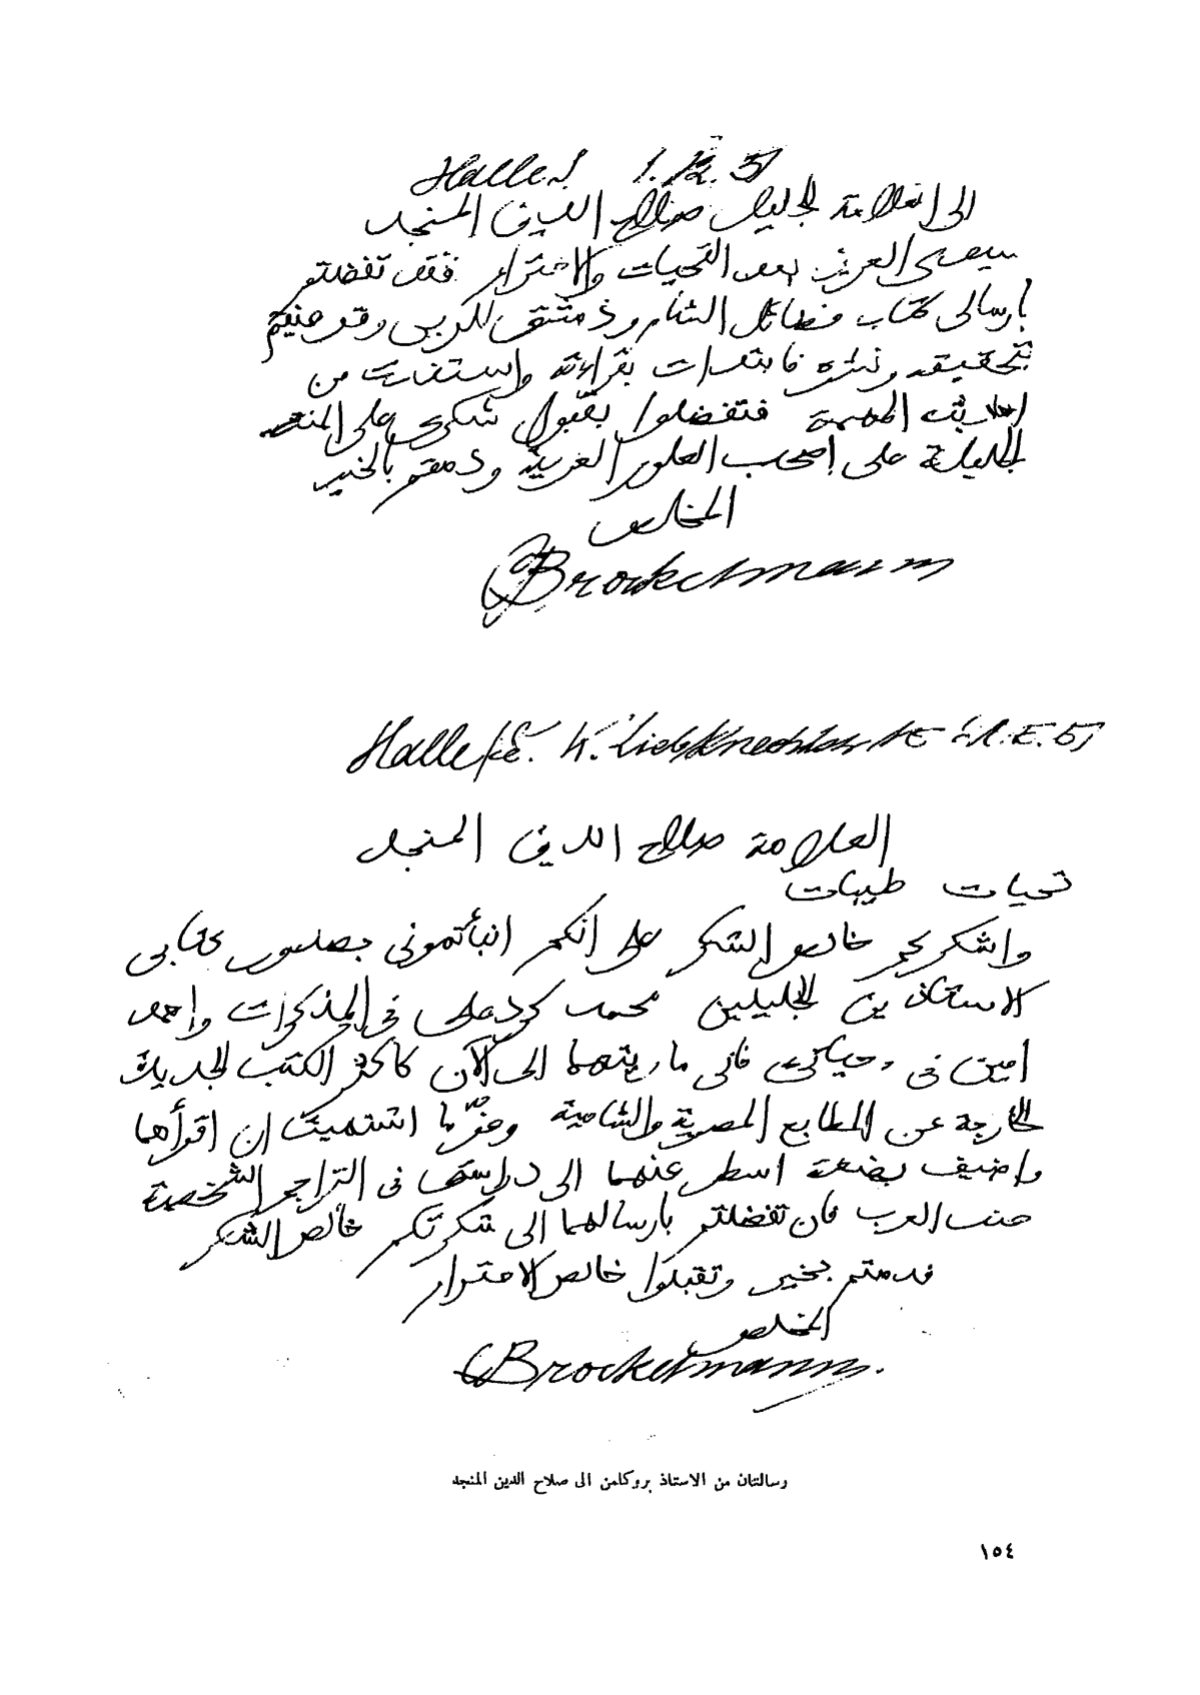 Halle
1.12.51
الى العلامة الجليل صلاح الدين المنجد
سيدى العزيز بعد التحيات والاحترام فقد تفضلتم
بارسالى كتاب فضائل الشام ودمشق للربعى وقد عنيتم
بتحقيقه ونشره فابتدأت بقراءته واستفدت من
المهمة فتفضلوا بقبول شكرى على
الجليلة على اصحاب العلوم العربية ودمتم بالخير
المخلص
CBrockelmann
Halle/S. K. Liebknechtstr 51
العلامة صلاح الدين المنجد
تحيات طيبات
واشكركم خالص الشكر على انكم انبأتمونى بصدور كتابى
الاستاذين الجليلين محمد كرد على فى المذكرات واحمد
امين فى حياتى فانى ما رءيتهما الى الآن كاكثر الكتب الجديدة
الخارجة عن المطابع المصرية والشامية اشتهيت ان اقرأهما
واضيف بضعة اسطر عنهما الى دراستى فى التراجم الشخصية
عند العرب فان تفضلتم بارسالهما الى شكرتكم خالص الشكر
فدمتم بخير وتقبلوا خالص الاحترام
المخلص
CBrockelmann.
رسالتان من الاستاذ بروكلمن الى صلاح الدين المنجد
١٥٤